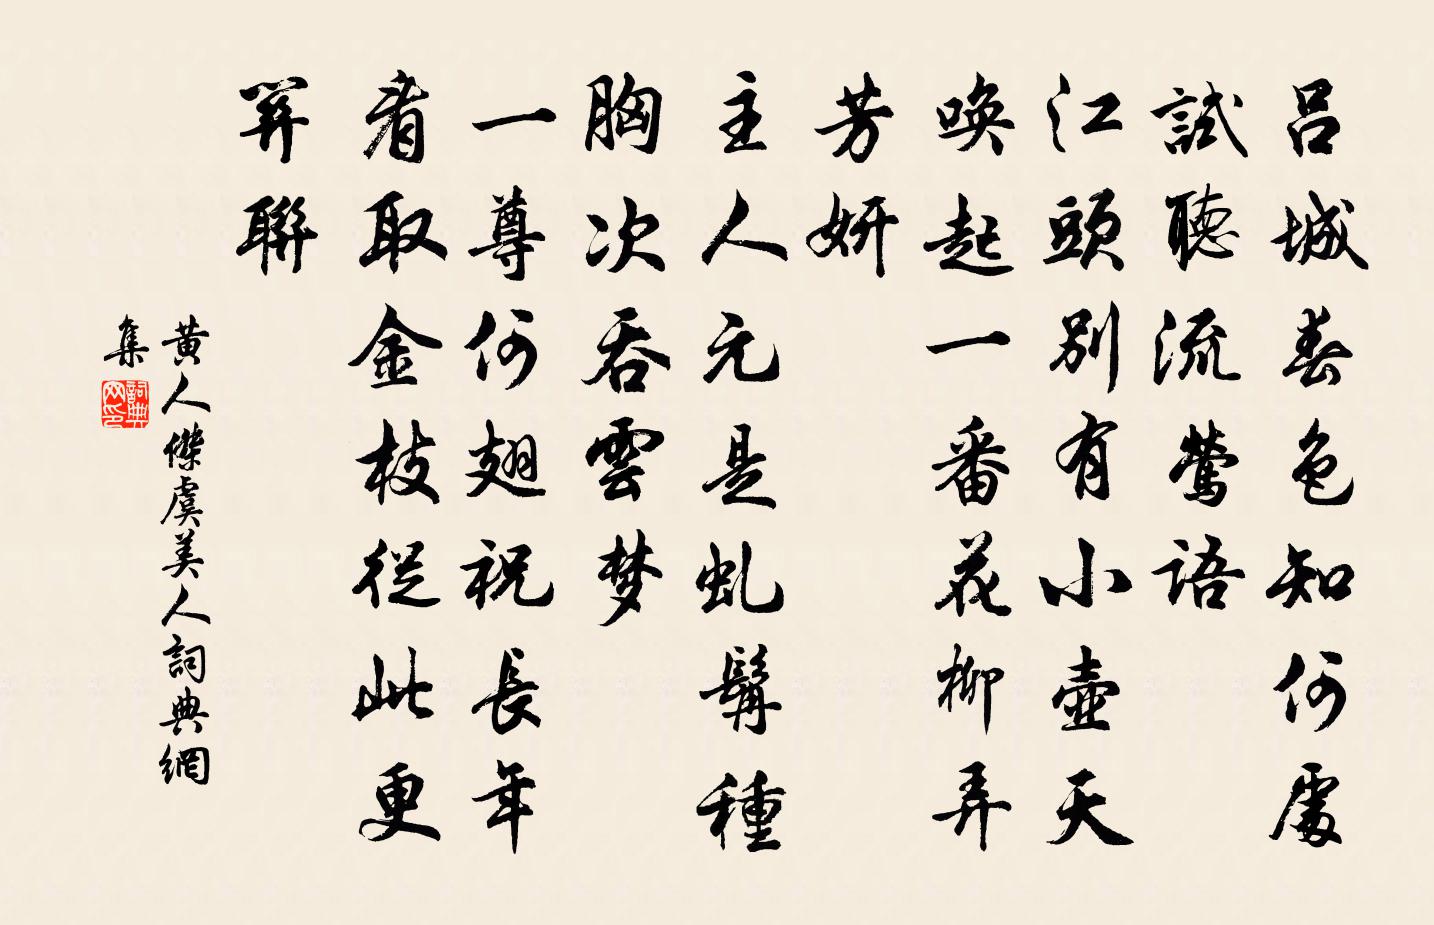 呂城春色知何處
試聽流鶯語
江頭別有小壺天
喚起一番花柳弄
芳妍
主人元是虬髯種
胸次吞雲梦
一尊何翅祝長年
看取金枝從此更
笄聯
黄人傑虞美人詞典網
集
詞典
网印